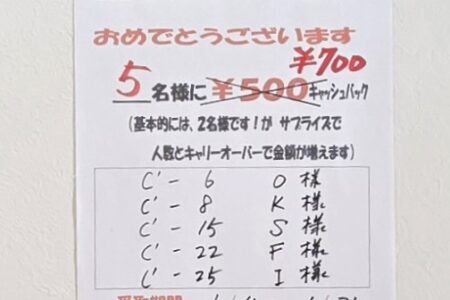 おめでとうございます
¥700
5名様に ¥500 キャッシュバック
(基本的には、2名様です!が サプライズで
人数とキャリーオーバーで金額が増えます)
C'-6 O 様
C'-8 K 様
C'-15 S 様
C'-22 F 様
C'-25 I 様